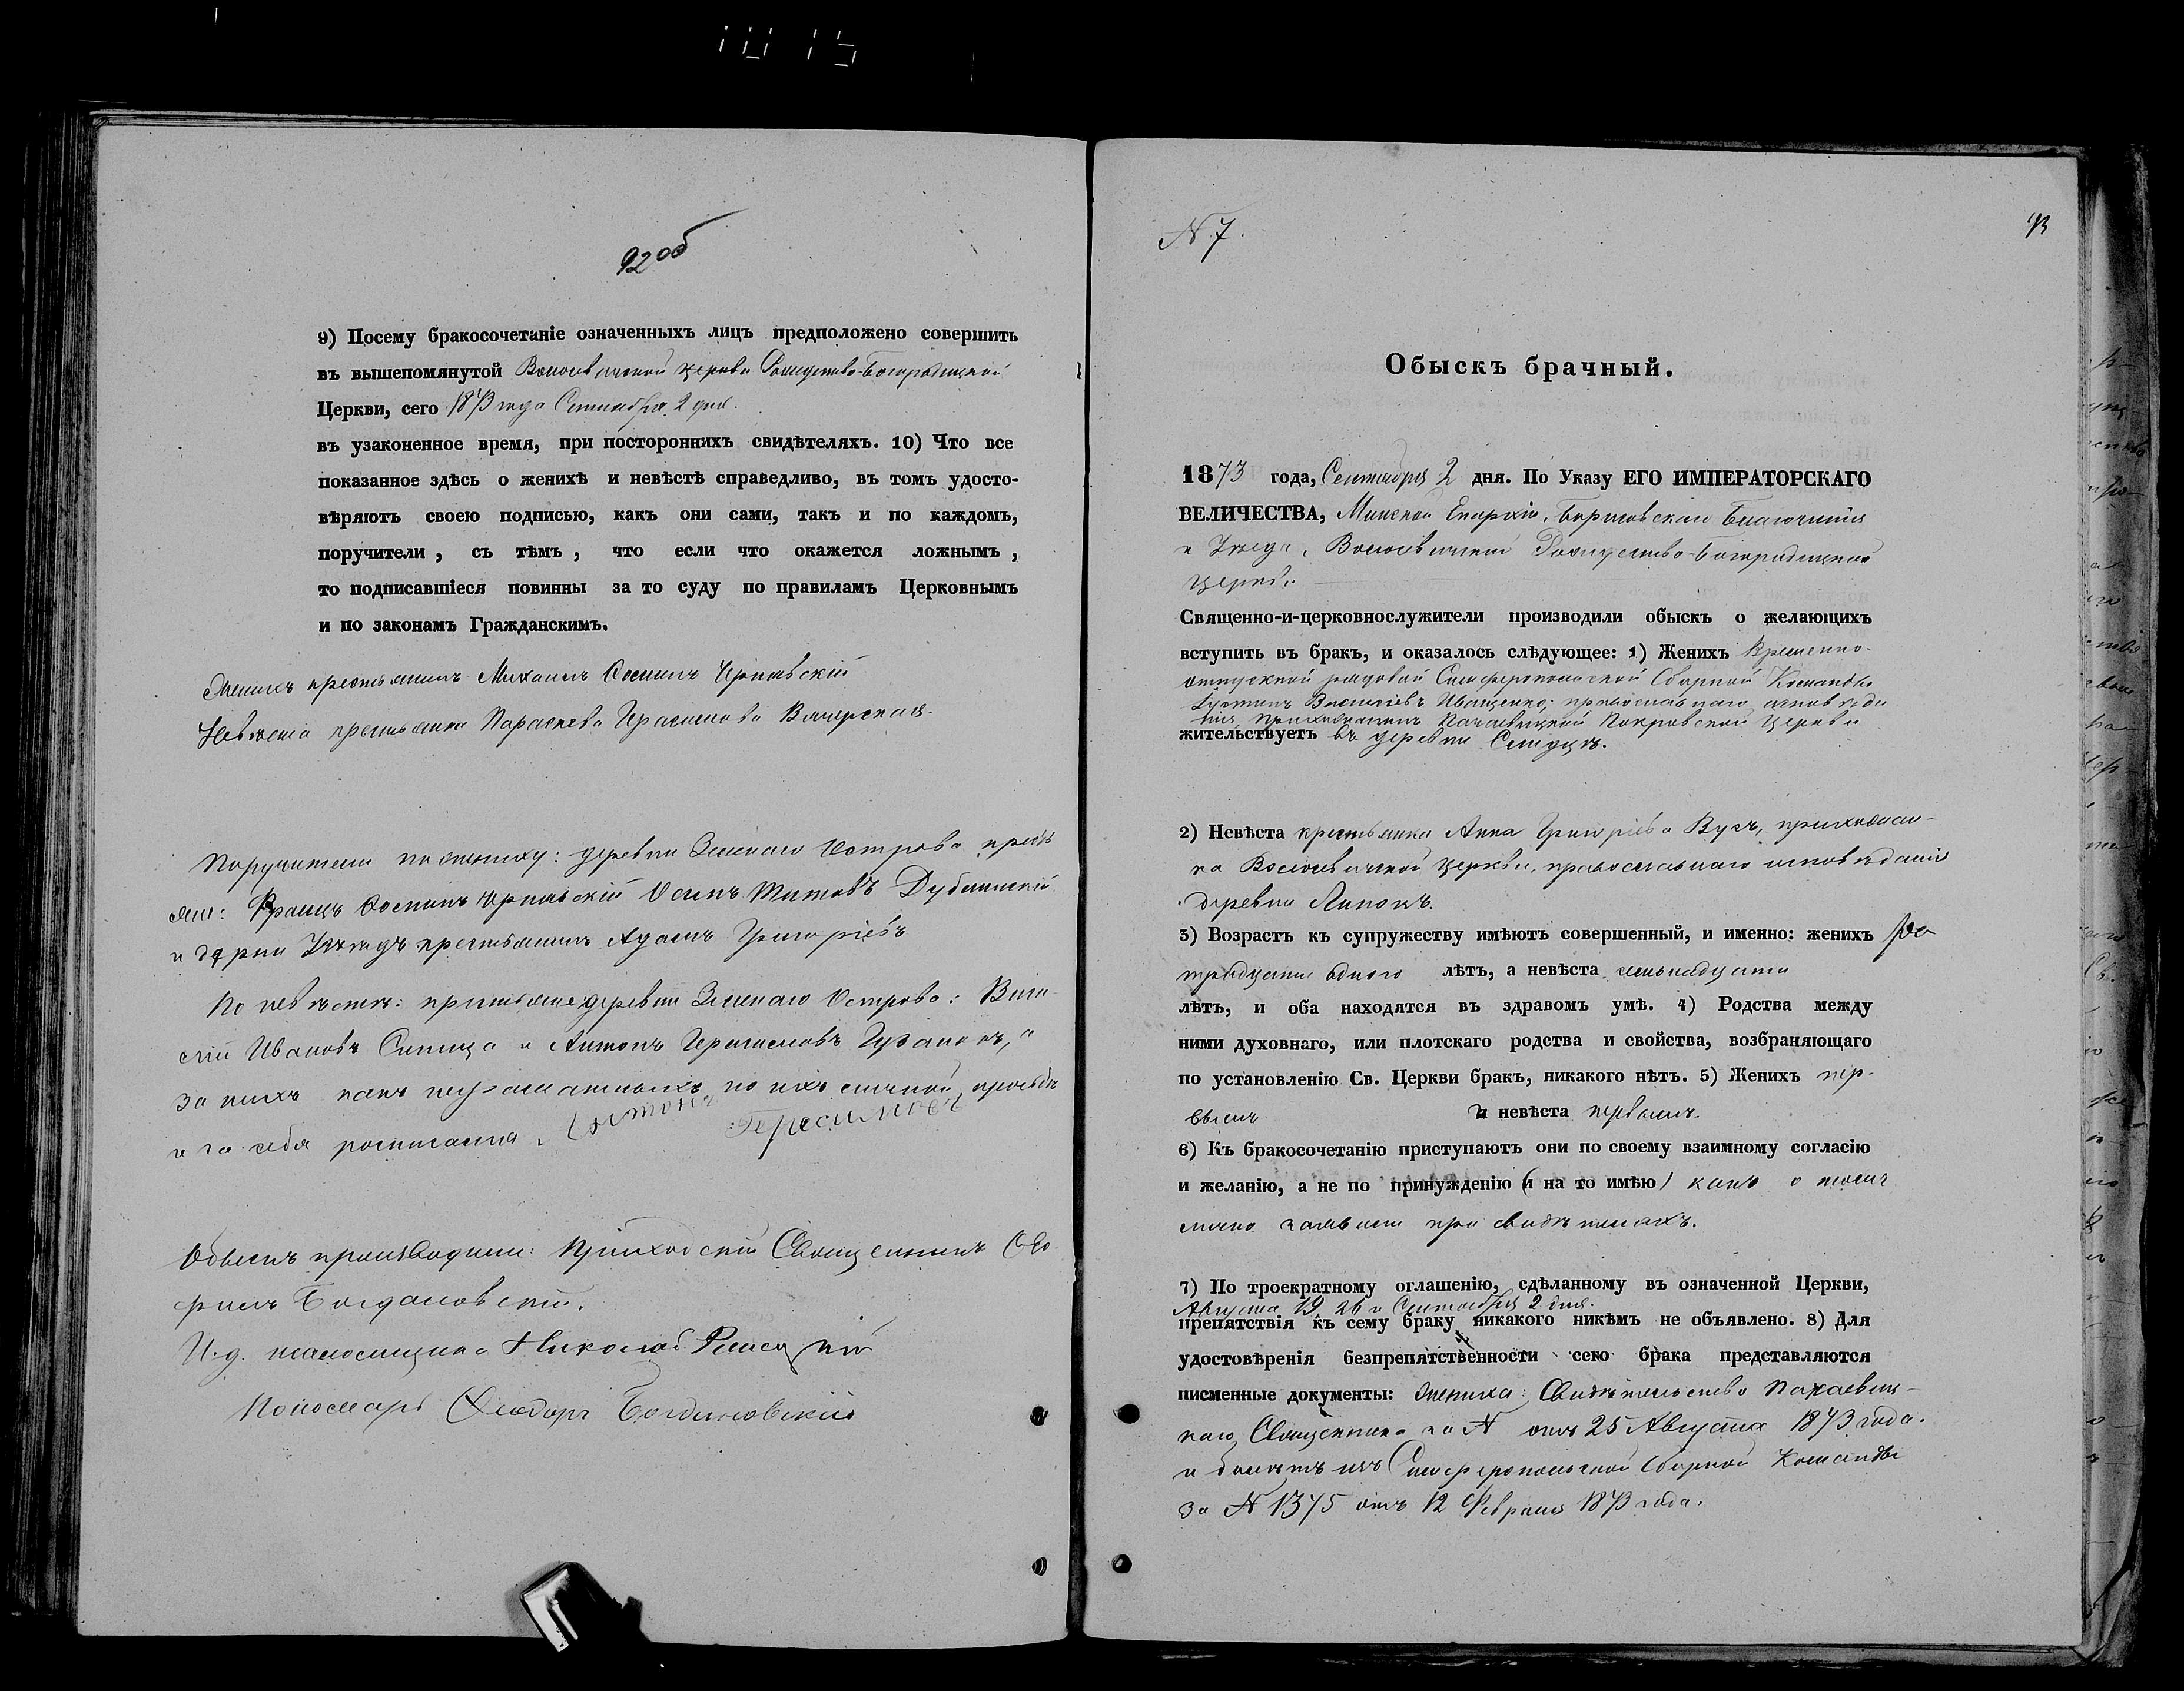 92 об
9) Посему бракосочетаніе означенныхъ лицъ предположено совершить
въ вышепомянутой церкви Рождество-Богородицкой
Церкви, сего 1873 года Сентября 2 дня.
въ узаконенное время, при постороннихъ свидѣтеляхъ. 10) Что все
показанное здѣсь о женихѣ и невѣстѣ справедливо, въ томъ удосто-
вѣряютъ своею подписью, какъ они сами, такъ и по каждомъ,
поручители, съ тѣмъ, что если что окажется ложнымъ,
то подписавшіеся повинны за то суду по правиламъ Церковнымъ
и по законамъ Гражданскимъ.
Женихъ крестьянинъ Михаилъ Осиповъ
Невѣста крестьянка Параскева Герасимова
Поручители по жениху: деревни Зеленаго Острова крестья
яне: Францъ Осиповъ Осипъ Титовъ
и крестьянинъ Адамъ Григорьевъ
По невѣстѣ: крестьяне деревни Зеленаго Острова:
Ивановъ Синица и Антонъ Герасимовъ а
за нихъ какъ неграмотныхъ по ихъ личной просьбѣ
и за себя росписался Антонъ Герасимовъ
Обыскъ производили: Приходскій Священникъ
Богдановскій.
И.д. псаломщика Николай
Пономарь Ѳеодоръ Богдановскій
N 7.
93
Обыскъ брачный.
1873 года, Сентября 2 дня. По Указу ЕГО ИМПЕРАТОРСКАГО
ВЕЛИЧЕСТВА, Минской Епархіи, Борисовскаго Благочинія
и Уѣзда, Рождество-Богородицкой
Церкви
Священно-и-церковнослужители производили обыскъ о желающихъ
вступить въ бракъ, и оказалось слѣдующее: 1) Женихъ Временно-
отпускной рядовой Симферопольской Сборной Команды
Иващенко; православнаго исповѣда
нія, прихожанинъ Покровской церкви
жительствуетъ въ деревни
2) Невѣста крестьянка Анна Григорьева прихожан-
ка церкви, православнаго исповѣданія
деревни
3) Возрастъ къ супружеству имѣютъ совершенный, и именно: женихъ
тридцати одного лѣтъ, а невѣста семьнадцати
лѣтъ, и оба находятся въ здравомъ умѣ. 4) Родства между
ними духовнаго, или плотскаго родства и свойства, возбраняющаго
по установленію Св. Церкви бракъ, никакого нѣтъ. 5) Женихъ пер-
вымъ и невѣста первымъ.
6) Къ бракосочетанію приступаютъ они по своему взаимному согласію
и желанію, а не по принужденію (и на то имѣю) какъ о томъ
лично заявили при свидѣтеляхъ.
7) По троекратному оглашенію, сдѣланному въ означенной Церкви,
Августа 19, 26 и Сентября 2 дня.
препятствія къ сему браку никакого никѣмъ не объявлено. 8) Для
удостовѣренія безпрепятственности сего брака представляются
писменные документы: Жениха: Свидѣтельство
каго Священника за N отъ 25 Августа 1873 года.
и билетъ изъ Симферопольской Сборной Команды
за N 1375 отъ 12 Февраля 1873 года.